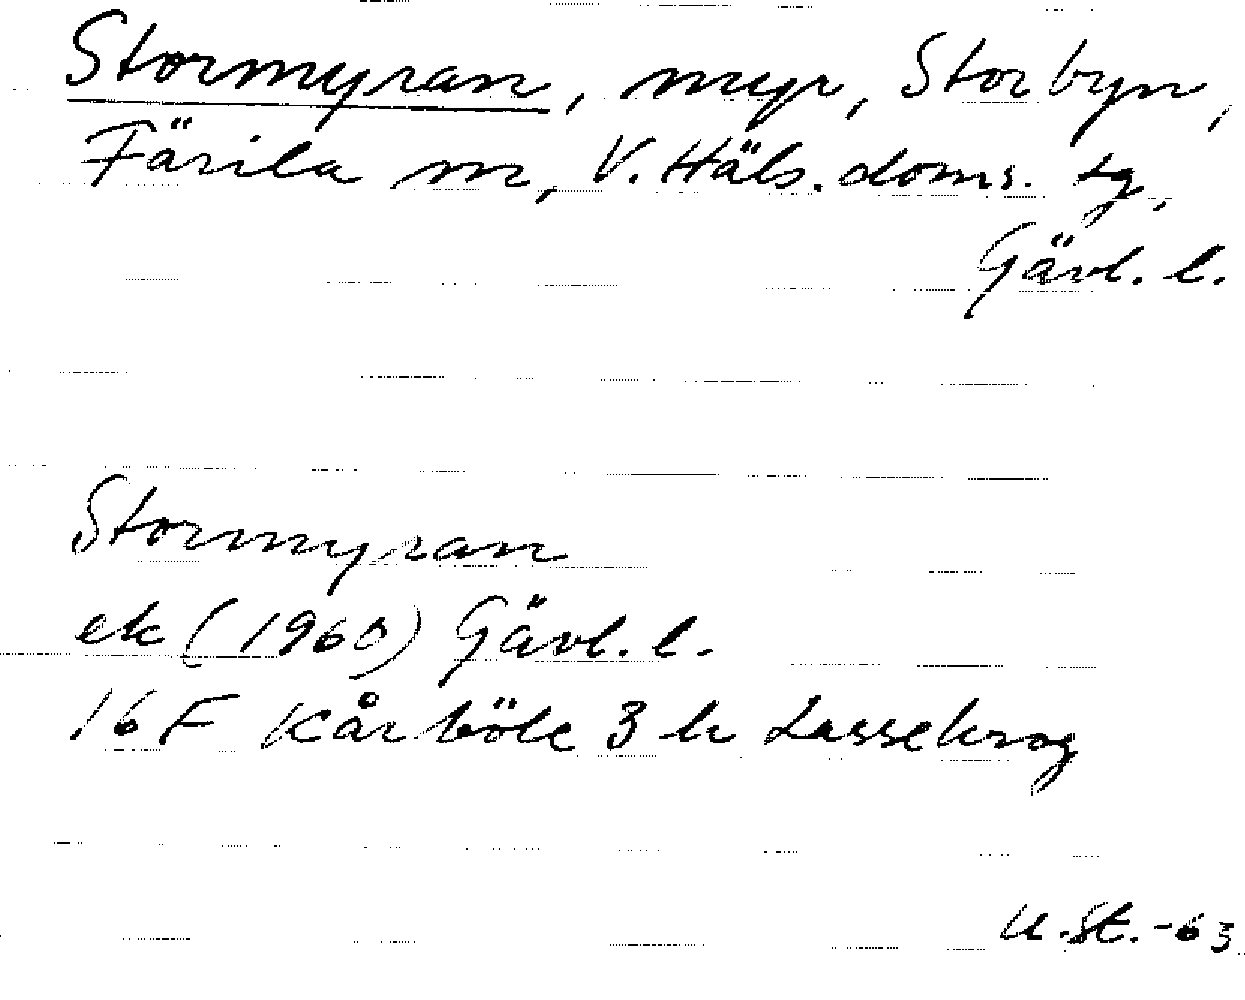 Stormyran, myr, Storbyn,
Färila sn, V. Häls. doms. tg,
Gävl. l.
Stormyran
ek (1960) Gävl. l.
16 F Kårböle 3 h Lassekrog
U.St.-63